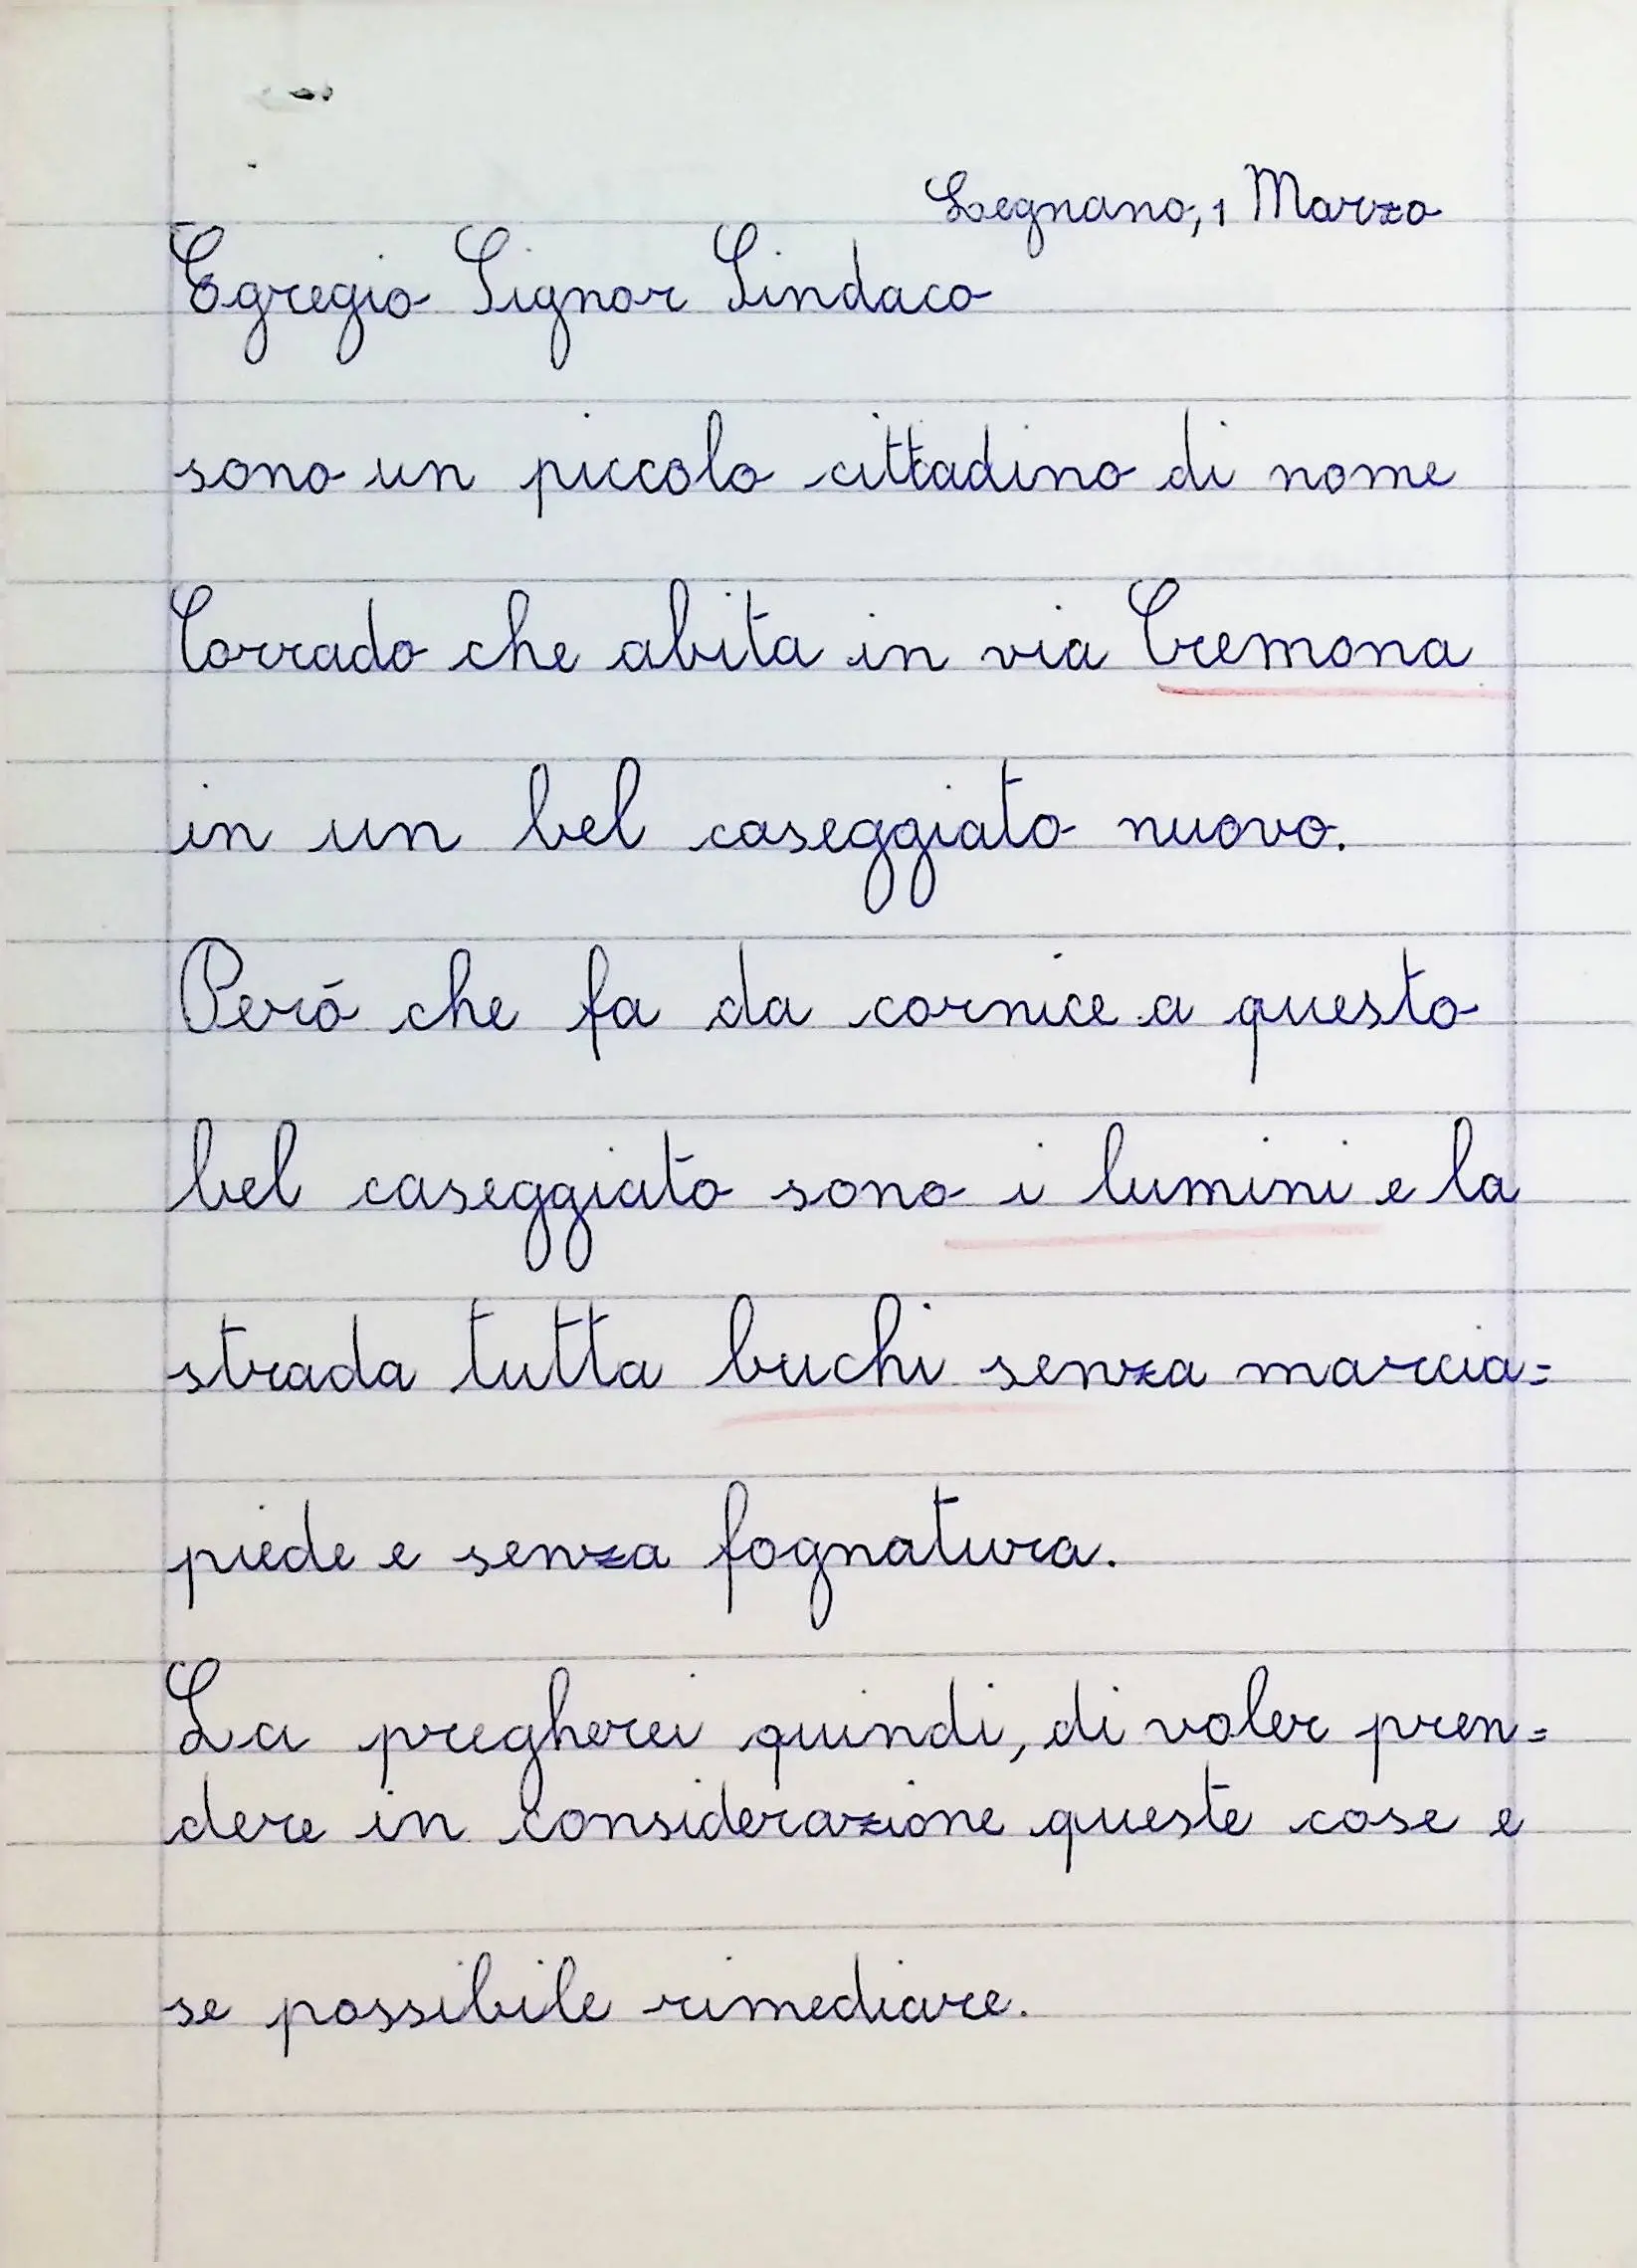 Legnano, 1 Marzo
Egregio Signor Sindaco
sono un piccolo cittadino di nome
Corrado che abita in via Cremona
in un bel caseggiato nuovo.
Peró che fa da cornice a questo
bel caseggiato sono i lumini e la
strada tutta buchi senza marcia=
piede e senza fognatura.
La pregherei quindi, di voler pren=
dere in considerazione queste cose e
se possibile rimediare.